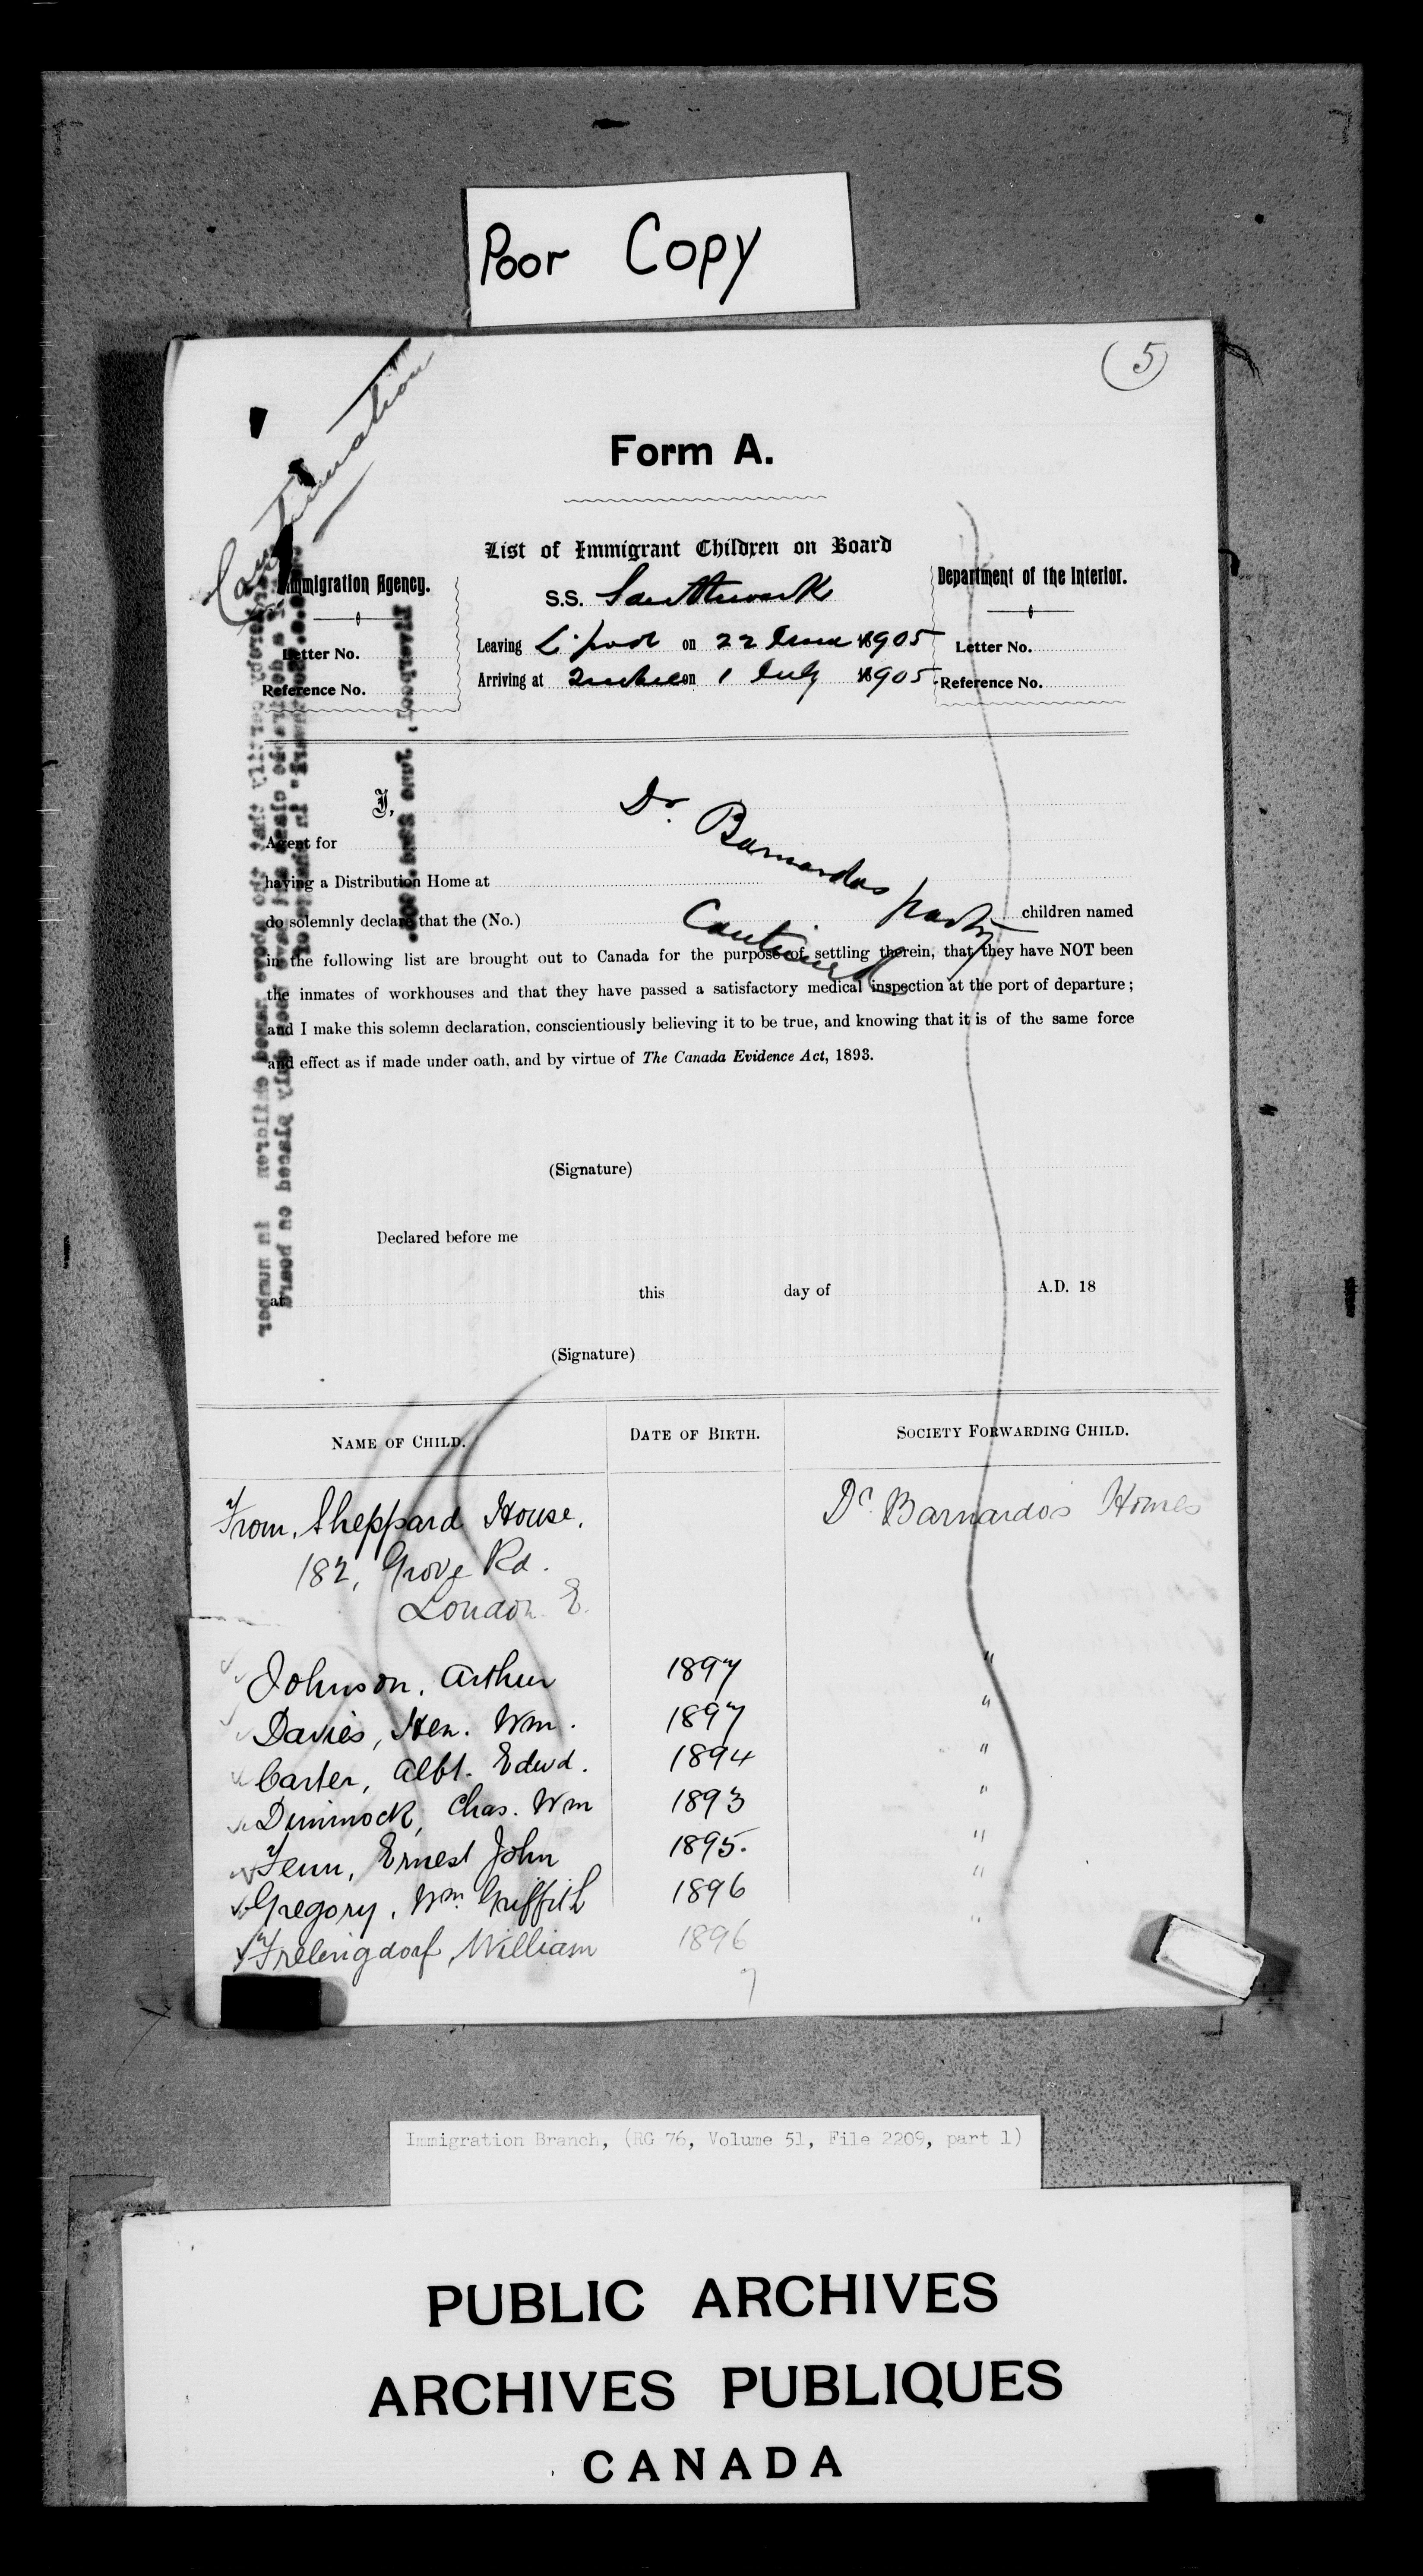 Poor Copy
(5)
Continuation
Form A.
List of Immigrant Children on Board
S.S. Southwark
Immigration Agency.
Letter No.
Reference No.
Leaving L'pool on 22 June 1905
Arriving at Quebec on 1 July 1905
Department of the Interior.
Letter No.
Reference No.
I,
Dr. Barnardos party
Continued
Agent for
having a Distribution Home at
do solemnly declare that the (No.) children named
in the following list are brought out to Canada for the purpose of settling therein, that they have NOT been
the inmates of workhouses and that they have passed a satisfactory medical inspection at the port of departure;
and I make this solemn declaration, conscientiously believing it to be true, and knowing that it is of the same force
and effect as if made under oath, and by virtue of The Canada Evidence Act, 1893.
(Signature)
Declared before me
at this day of A.D. 18
(Signature)
NAME OF CHILD. DATE OF BIRTH. SOCIETY FORWARDING CHILD.
From Sheppard House, Dr. Barnardo's Homes
182, Grove Rd.
London E.
Johnson, Arthur 1897 "
Davies, Hen. Wm. 1897 "
Carter, Albt. Edwd. 1894 "
Dimmock, Chas. Wm 1893 "
Fenn, Ernest John 1895. "
Gregory, Wm. Griffith 1896 "
Frelingdorf, William 1896 "
7
Immigration Branch, (RG 76, Volume 51, File 2209, part 1)
PUBLIC ARCHIVES
ARCHIVES PUBLIQUES
CANADA